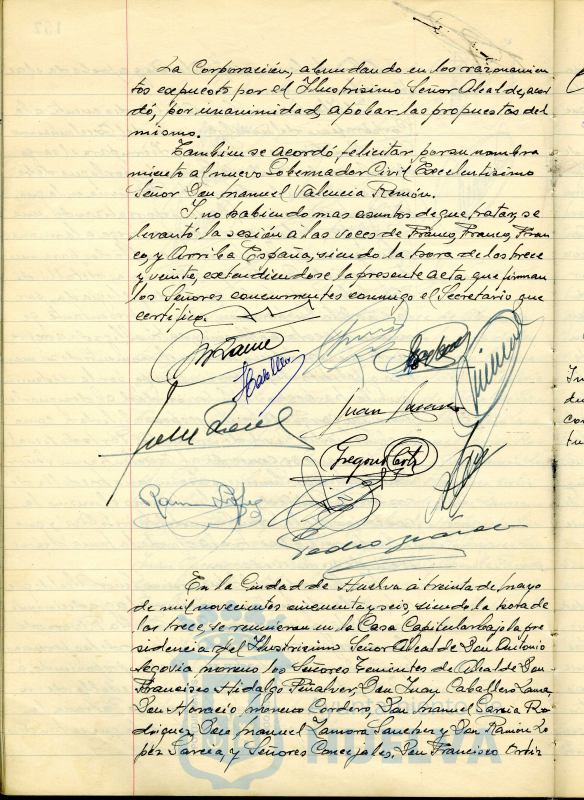 La Corporación, abundando en los razonamien
tos expuesto por el Ilustrisimo Señor Alcalde, acor
dó, por unanimidad, apobar las propuestas del
mismo.
Tambien se acordó felicitar por su nombra
miento al nuevo Gobernador Civil Excelentisimo
Señor Don Manuel Valencia Remón.
Y no habiendo mas asuntos de que tratar, se
levantó la sesión á las voces de Franco, Franco, Fran
co, y Arriba España, siendo la hora de las trece
y veinte, extendiendose la presente acta, que firman
los Señores concurrentes conmigo el Secretario que
certifico.
Juan
Gregorio
Ramon
Pedro
En la Ciudad de Huelva á treinta de mayo
de mil novecientos cincuenta y seis, siendo la hora de
las trece, se reunieron en la Casa Capitular bajo la pre
sidencia del Ilustrisimo Señor Alcalde Don Antonio
Segovia Moreno los Señores Tenientes de Alcalde Don
Francisco Hidalgo Peñalver, Don Juan Caballero Lama,
Don Horacio Moreno Cordero, Don Manuel Garcia Ro
driguez, Don Manuel Zamora Sanchez y Don Ramon Ló
pez Garcia, y Señores Concejales, Don Francisco Ortiz
HUELVA
157